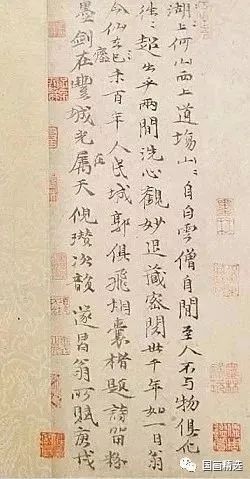 湖上何山而上道場山〻自白雲僧自閒至人不与物俱化
往〻超出乎兩間洗心觀妙退藏密閱世千年如一日翁
今仙去已未百年人民城郭俱飛烟囊楮題詩留粉
墨劍在豐城光属天倪瓚次韻遂昌翁所賦唐棧
国画精选